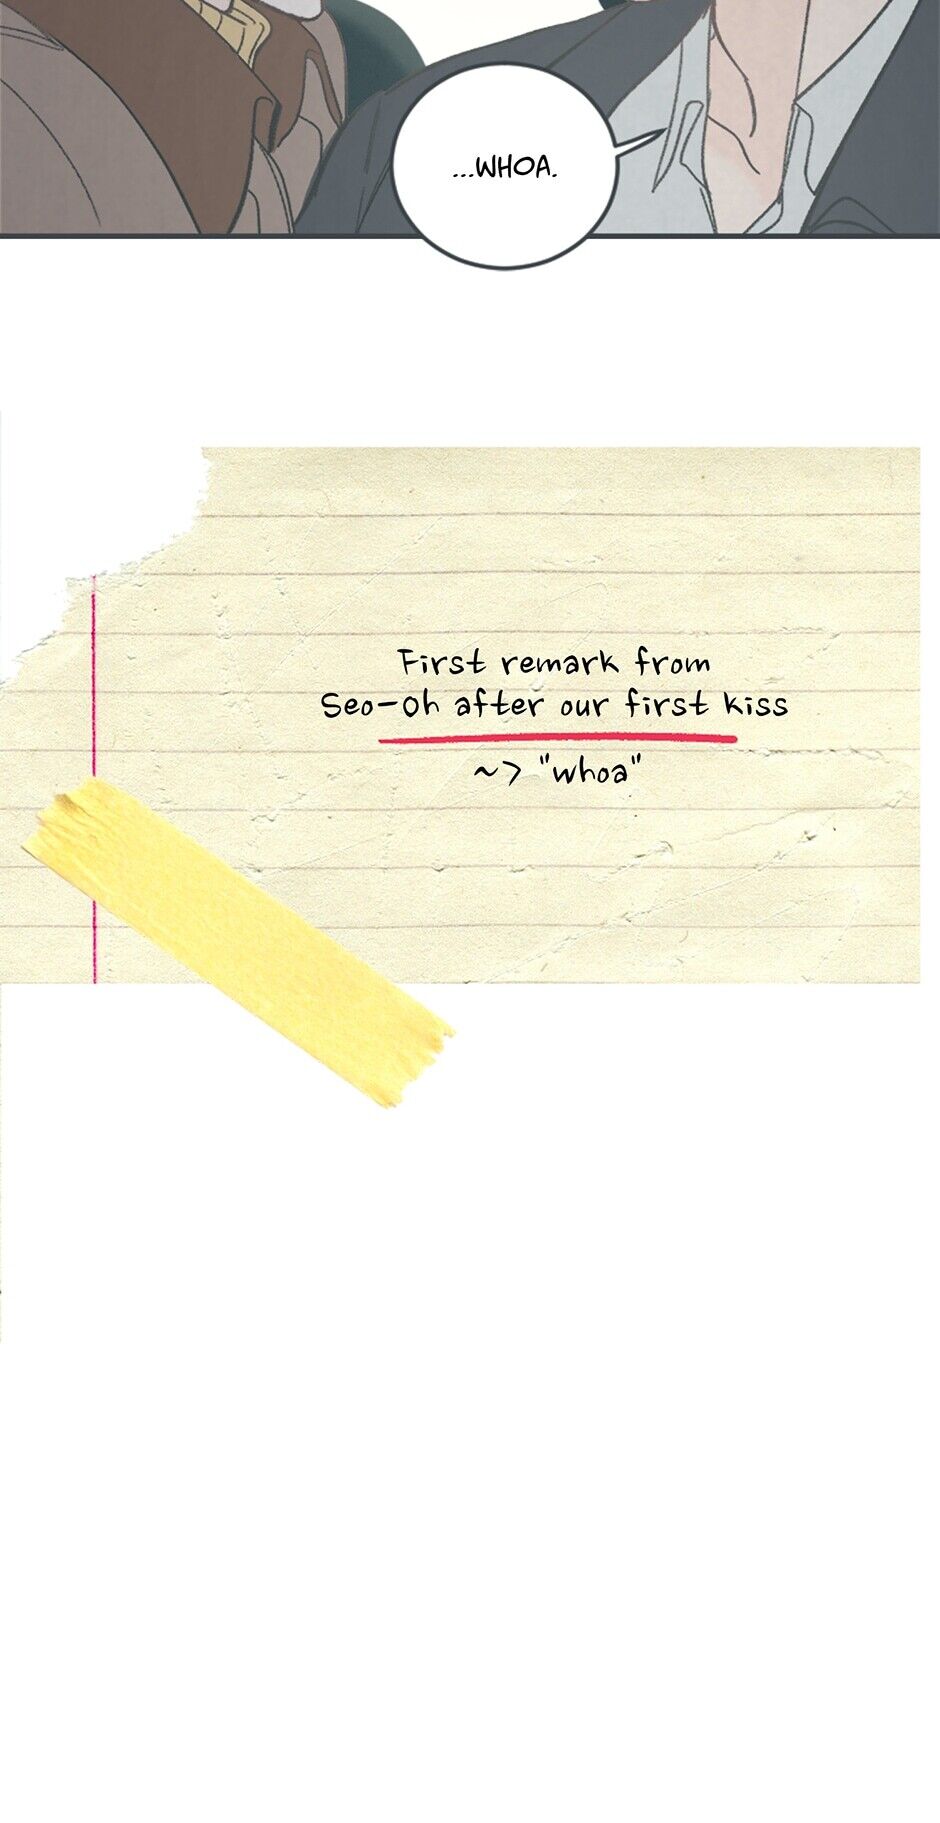 ...WHOA.
First remark from
Seo-Oh after our first kiss
~> "whoa"